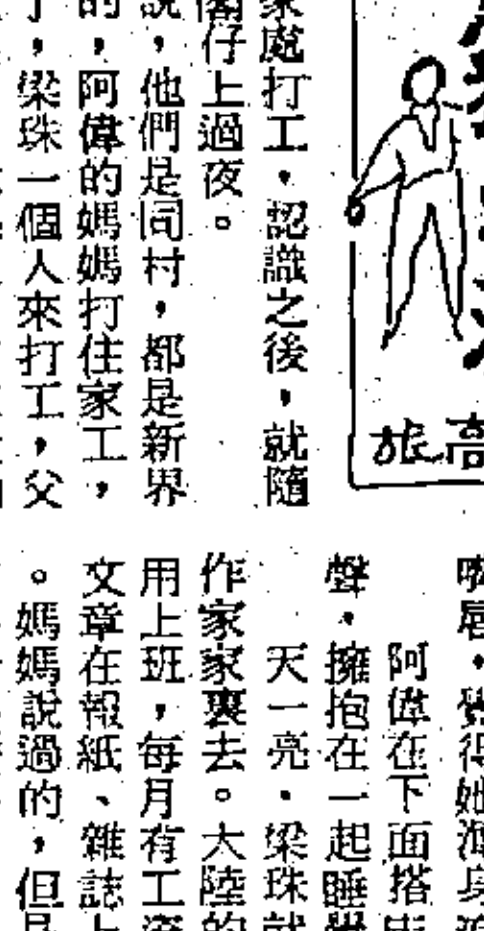 高旅
家處打工，認識之後，就隨
閣仔上過夜。
說，他們是同村，都是新界
的，阿偉的媽媽打住家工，
了，梁珠一個人來打工，父
嘴唇，覺得她渾身
阿偉在下面搭
聲，擁抱在一起睡覺
天一亮，梁珠就
作家家裏去。大陸的
用上班，每月有工
文章在報紙、雜誌上
。媽媽說過的，但是